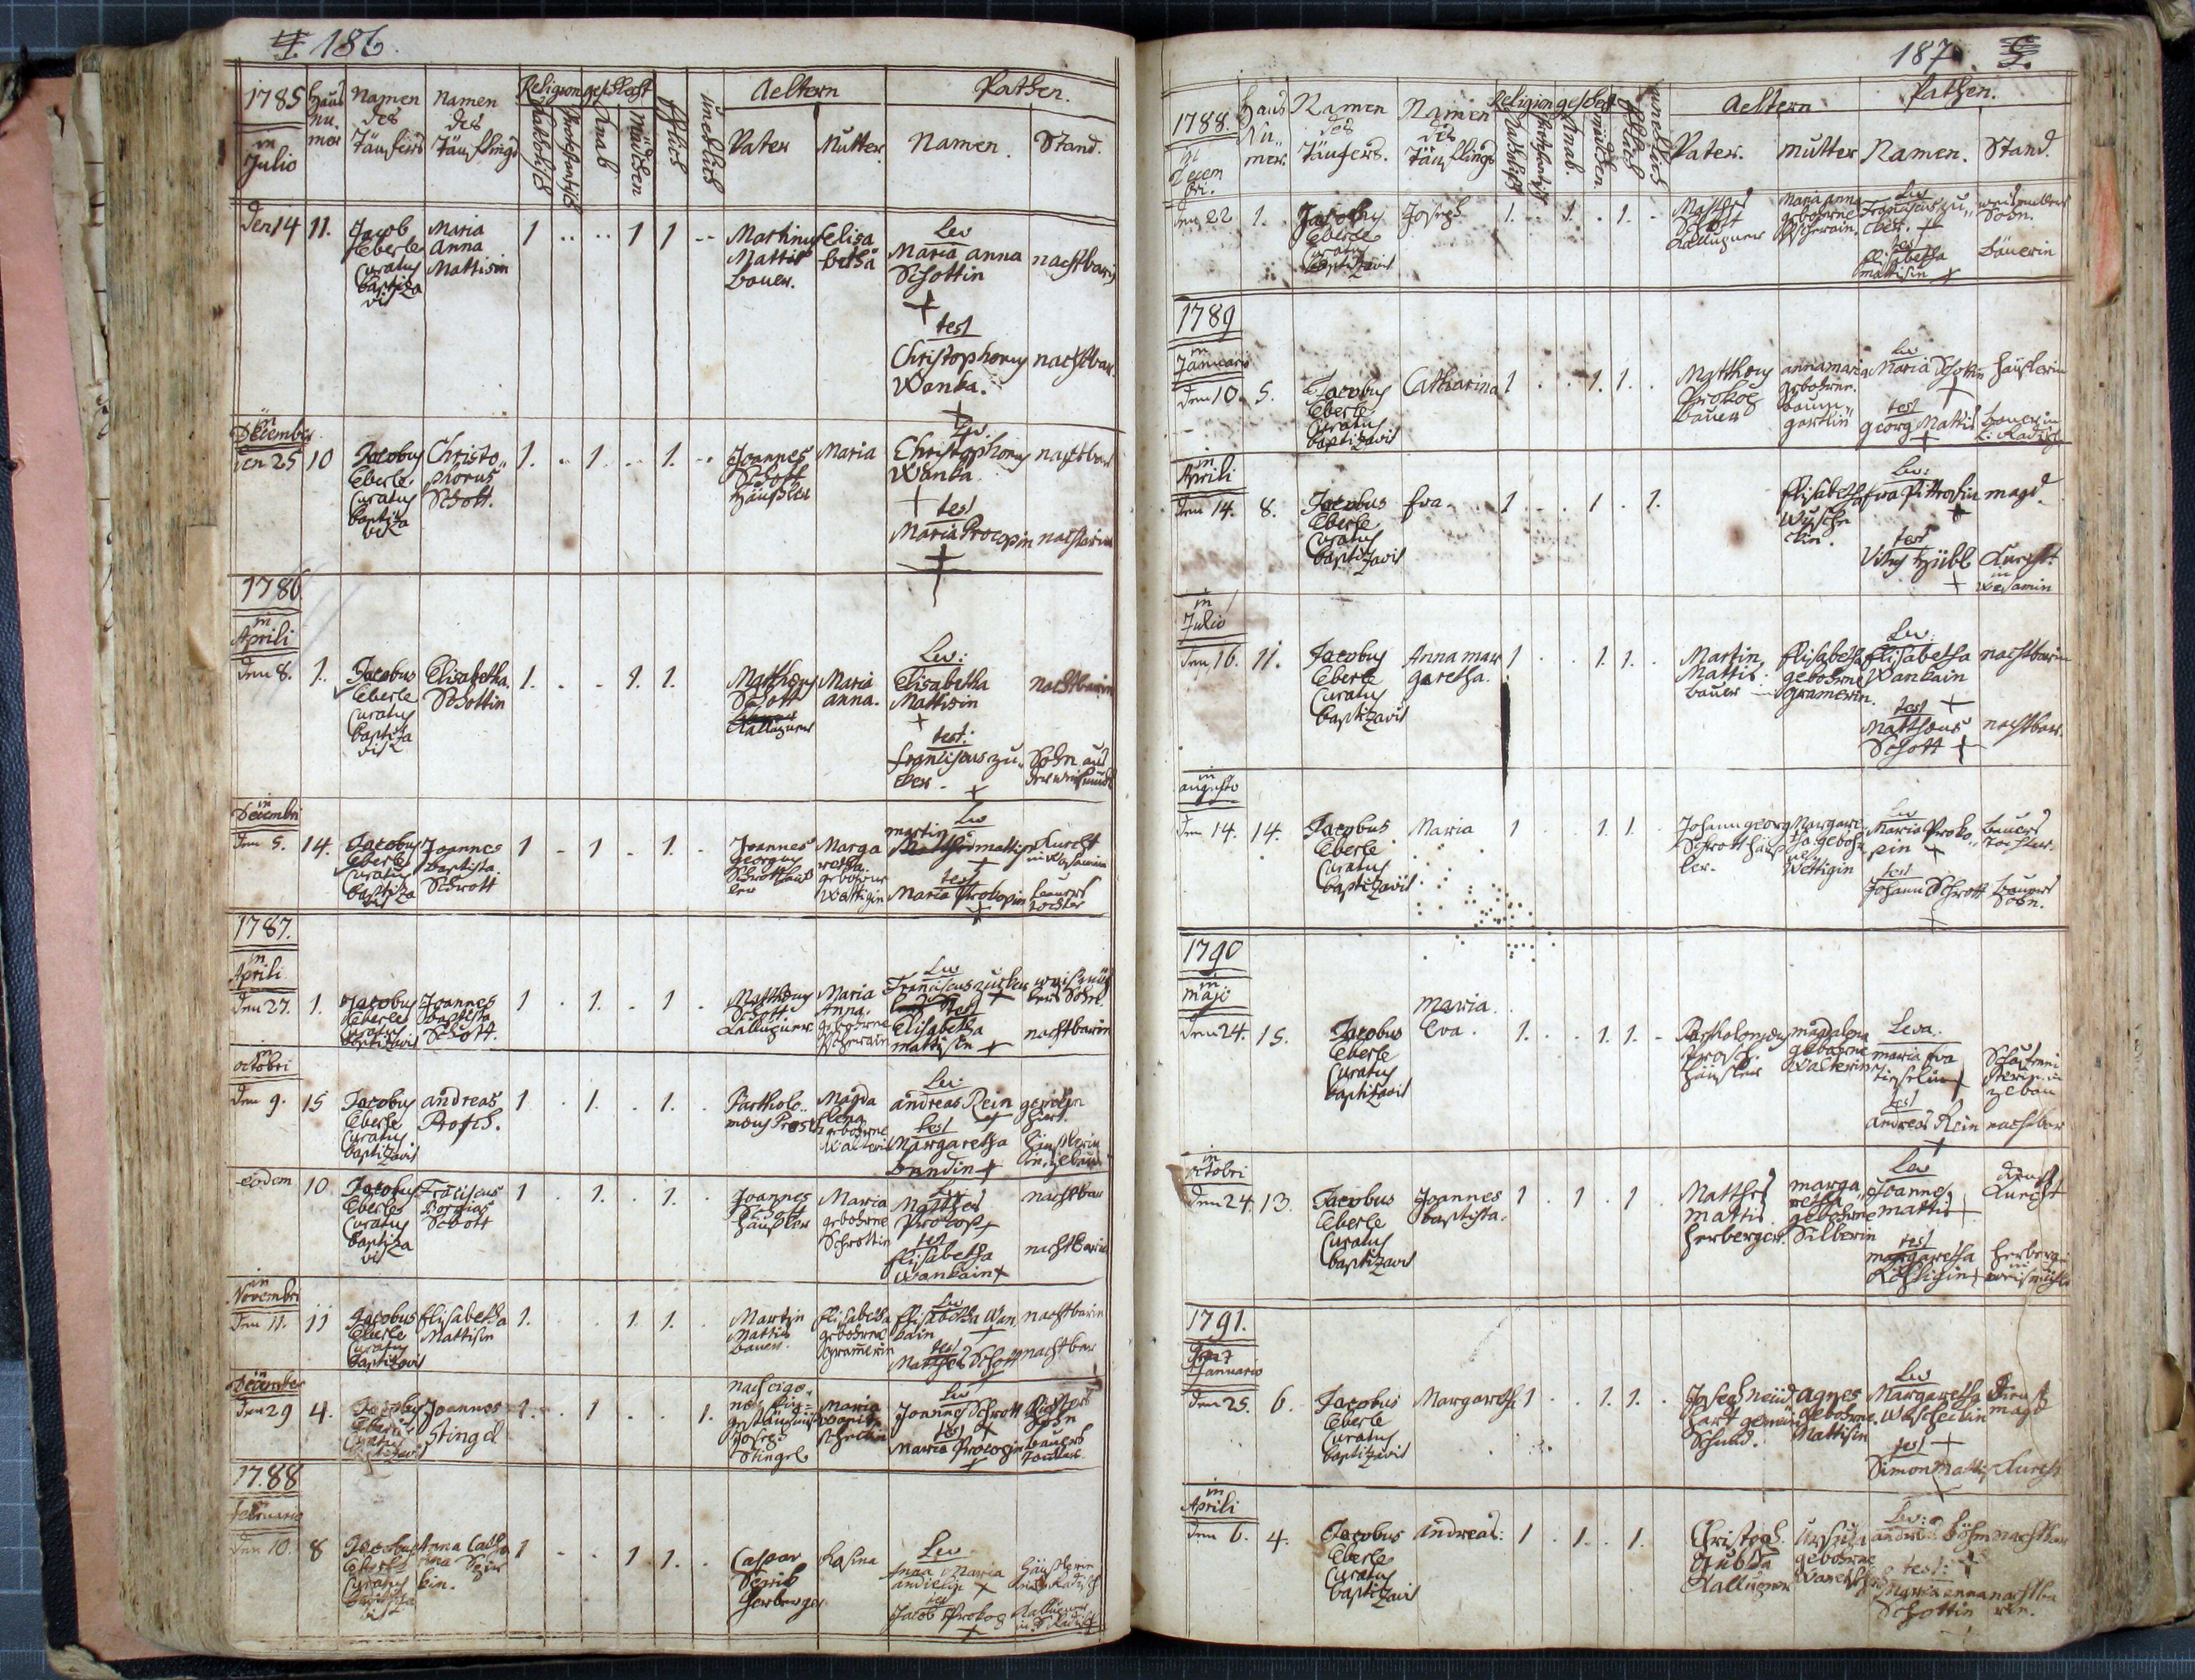 186.
1785
in
Julio
Haus
nu
mer
Namen
des
Täufers
Namen
des
Täuflings
Religion
Katholisch
Protestantisch
geschlecht
Knab
Mädchen
Ehlich
unehlich
Aeltern
Vater
Mutter
Pathen.
Namen.
Stand.
den 14
11.
Jacob
Eberle
Curatus
baptiza
vit
Maria
Anna
Mattisin
1
1
1
Martinus
Mattis
bauer.
Elisa
betha
Lev
Maria anna
Schottin
nachtbarin
test
Christophorus
Wanka.
nachtbar.
in
December
den 25
10
Jacobus
Eberle
Curatus
baptiza
vit
Christo
phorus
Schott.
1.
1
1.
Joannes
Schott
Häußler
Maria
Lev.
Christophorus
Wanka
nachtbar
test
Maria Procopin
1786
in
Aprili
den 8.
1.
Jacobus
Eberle
Curatus
baptiza
vit
Elisabetha.
Schottin
1.
1.
1.
Mattheus
Schott
Kallupner
Maria
anna.
Lev:
Elisabetha
Mattisin
nachtbarin
test:
Franciscus zu
cker.
Sohn aus
in
Decembri
den 5.
14.
Jacobus
Eberle
Curatus
baptiza
vit
Joannes
baptista.
Schrott
1
1
1.
Joannes
Georgius
Schrott häus
ler
Marga
retha
gebohrne
Wettigin
Lev
martin
mattis
Knecht
test
Maria Prokopin
bauers
tochter
1787.
in
Aprili
den 27.
1.
Jacobus
Eberle
Curatus
baptizavit
Joannes
Baptista
Schott.
1
1.
1
Mattheus
Schott
Kallupner
Maria
Anna.
gebohrne
Lev
Franciscus zucker
lers Sohn.
test
Elisabetha
mattisin
nachtbarin
in
octobri
den 9.
15
Jacobus
Eberle
Curatus
baptizavit
andreas
Prosch.
1
1.
1.
Bartholo
meus Prosch
Magda
lena
gebohrne
Walterin
Lev.
andreas Rein
test
Margaretha
eodem
10
Jacobus
Eberle
Curatus
baptiza
vit
Franciscus
Borgias
Schott
1
1.
1.
Joannes
Schott
häusler
Maria
gebohrne
Schrottin
Lev
Matthes
Prokop
nachtbar
test
Elisabetha
Wankain
nachtbarin
in
Novembri
den 11.
11
Jacobus
Eberle
Curatus
baptizavit
Elisabetha
Mattisin
1.
1
1.
Martin
Mattis
bauer.
Elisabetha
gebohrne
Gramerin
Lev
Elisabetha Wan
kain
nachtbarin
test
Matthes Schott
nachtbar
December
den 29
4.
Jacobus
Eberle
Curatus
baptizavit
Joannes
Stingel
1.
1
1.
Joseph
Stingel
Maria
Lev
Joannes Schrott
Sohn
test
Maria Procopin
bauers
tochter
1788
Februario
den 10.
8
Jacobus
Eberle
Curatus
baptiza
vit
Anna Catha
rina
kin.
1
1
1.
Caspar
herberger
Rosina
Lev
Anna Maria
test
Jacob Prokop
187.
1788.
in
Decem
bri.
Haus
Nu
mer.
Namen
des
Täufers.
Namen
des
Täuflings
Religion
geschlecht
Knab.
mädchen.
Ehlich
unehlich
Aeltern
Vater.
Mutter
Pathen.
Namen.
Stand.
den 22
1.
Jacobus
Eberle
Curatus
baptizavit
Joseph
1.
1.
1.
Matthes
Schott
Kallupner
Maria anna
gebohrne
Lev
Franciscus zu
cker.
Sohn.
test
Elisabetha
mattisin
bäuerin
1789
in
Januario
den 10.
5.
Jacobus
Eberle
Curatus
baptizavit
Catharina
1
1.
1.
Mattheus
Prokop
bauer
anna maria
gebohrne
Baum
gartlin
Lev
Maria Schottin
häuslerin
test
georg Mattis
in
Aprili
den 14.
8.
Jacobus
Eberle
Curatus
baptizavit
Eva.
1
1
1.
Elisabetha
Lev:
Eva Pittrofin
magd.
test
Vitus Hübl
Knecht
in
Wesamin
in
Julio
den 16.
11.
Jacobus
Eberle
Curatus
baptizavit
Anna mar
garetha.
1
1.
1.
Martin
Mattis
bauer
Elisabetha
gebohrne
Gramerin.
Lev:
Elisabetha
Wankain
nachtbarin
test
Mattheus
Schott
nachtbar.
in
augusto
den 14.
14.
Jacobus
Eberle
Curatus
baptizavit
Maria
1
1.
1.
Johann georg
Schrott häus
ler.
Margare
tha geboh
rne
Wettigin
Lev
Maria Proko
pin
bauers
tochter.
test
Johann Schrott
bauers
Sohn.
1790
in
majo
den 24.
15.
Jacobus
Eberle
Curatus
baptizavit
maria
Eva.
1.
1.
1.
Bartholomeus
Prosch.
häusler
magdalena
gebohrne
Walterin
Leva.
maria Eva
test
andreas Rein
nachtbar
in
octobri
den 24.
13.
Jacobus
Eberle
Curatus
baptizavit
Joannes
baptista.
1
1
1
Matthes
mattis
herberger.
marga
retha
gebohrne
Silberin
Lev
Joannes
mattis
dienst
Knecht
test
margaretha
herbergerin
1791.
in
Januario
den 25.
6.
Jacobus
Eberle
Curatus
baptizavit
Margaretha
1
1.
1.
Joseph neid
hart
Schmid.
agnes
gebohrne
Mattisin
Lev
Margaretha
dienst
magd
test
Simon Mattis
Knecht
in
Aprili
den 6.
4.
Jacobus
Eberle
Curatus
baptizavit
andreas:
1
1.
1.
Christoph
Kallupner
Ursula
gebohrne
Lev:
andreas böhm
nachtbar
test:
Maria anna
Schottin
nachtba
rin.